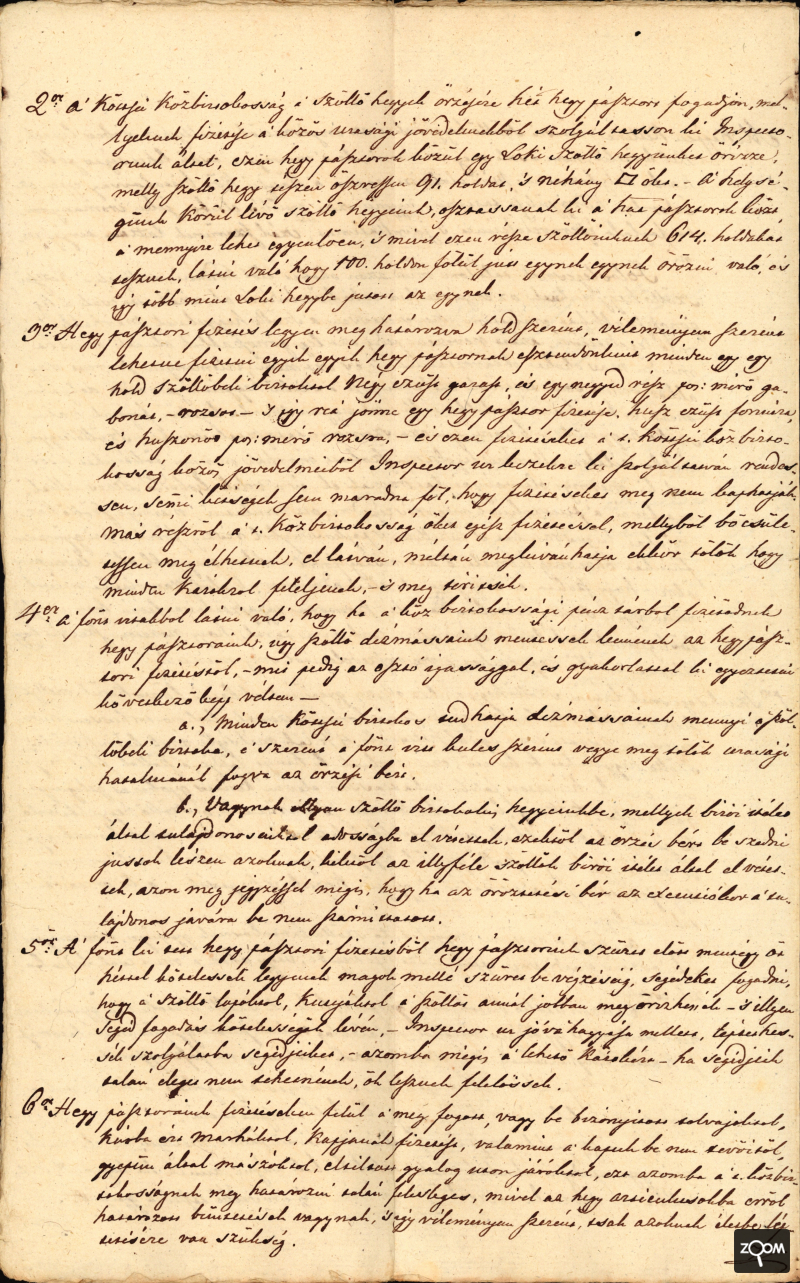 2or A' Köttsei Közbirtokosság a' Szöllö hegyek örzésére hét hegy pásztort fogadjon, mel-
lyeknek fizetése a' közös urasági jövedelmekböl szolgáltasson ki Inspecto-
runk által, ezen hegy pásztorok közül egy Loki szöllö hegyünket örizze,
melly szöllö hegy teszen öszvessen 91. holdat, 's néhány □ ölet. – A' helysé-
günk körül lévö szöllö hegyeink, osztassanak ki a' hat pásztorok közt
a' mennyire lehet egyenlöen, 's mivel ezen része szöllöinknek 614. holdakat
tesznek, látni való hogy 100. holdon fölül jut egynek egynek örözni való, és
így több mint Loki hegybe jutott az egynek.
3or Hegy pásztori fizetés legyen meghatározva hold szerint, véleményem szerént
lehetne fizetni egyik egyik hegy pásztornak esztendönkint minden egy egy
hold szöllöbeli birtoktol Négy ezüst garast, és egy negyed rész po: mérö ga-
bonát, – rozsot – 's így reá jönne egy hegy pásztor fizetése, husz ezüst forintra,
és huszonöt po: mérö rozsra, – és ezen fizetéseket a' t. Köttsei közbirto-
kosság közös jövedelmeiböl Inspector ur kezekre ki szolgáltatván rendes-
sen, semi kétségek sem maradna föl, hogy fizetéseket meg nem kaphatják
más részröl a' t. Közbirtokosság öket egész fizetéssel, mellyböl böcsüle-
tessen meg élhetnek, el látván, méltán megkivánhatja ekkor tölök hogy
minden károkrol feleljenek, – 's meg térittsék.
4er A' fönt irtakbol látni való, hogy ha a' köz birtokossági pénz tárbol fizetödnek
hegy pásztoraink, ugy szöllö dézmássaink mentessek lennének az hegy pász-
tori fizetéstöl, – mit pedig az osztó igassággal, és gyakorlattal ki egyeztetni
következö kép vélem –
a., Minden Köttsei birtokos tudhatja dézmássainak mennyi a' szöl-
löbeli birtoka, e' szerént a' fönt irtt kulcs szerint vegye meg tölök urasági
hatalmánál fogva az örzési bért.
b., Vagynak ollyan szöllö birtokaliy hegyeinkbe, mellyek birói itélet
által tulajdonosoktol adosságba el vétettek, ezektöl az örzés bért be szedni
jussok lészen azoknak, kiktöl az illyféle szöllök birói itélet által el vétet-
tek, azon meg jegyzéssel mégis, hogy ha az öröztetési bér az executiókor a' tu-
lajdonos javára be nem számittatott.
5ör A' fönt ki tett hegy pásztori fizetésböl hegy pásztorink szüret elött mentegy öt
héttel kötelessek legyenek magok mellé szüret be végzéséig, segédeket fogadni,
hogy a' szöllö lopóktol, kutyáktol a' szöllöt annál jobban meg örizhessék – 's illyen
segéd fogadás kötelességök lévén, – Inspector ur jóváhagyása mellett, léptethes-
sék szolgálatba segédjeiket, – azomba mégis a' lehetö károkra – ha segédjeik
talán eleget nem tehetnének, ök lesznek felelössek.
6or Hegy pásztoraink fizetéseken felül a' meg fogott, vagy be bizonyitott tolvajoktol,
kárba ért marháktol, kapjanak fizetést, valamint a' kaput be nem tevöktöl,
gyepün által mászóktol, eltiltott gyalog uton járóktol, ezt azomba a' t. közbir-
tokosságnak meg határozni talán felesleges, mivel az hegy articulusokba erröl
határozott büntetések vagynak, 's igy véleményem szerént, tsak azoknak életbe lép-
tetésére van szükség.
ZOOM